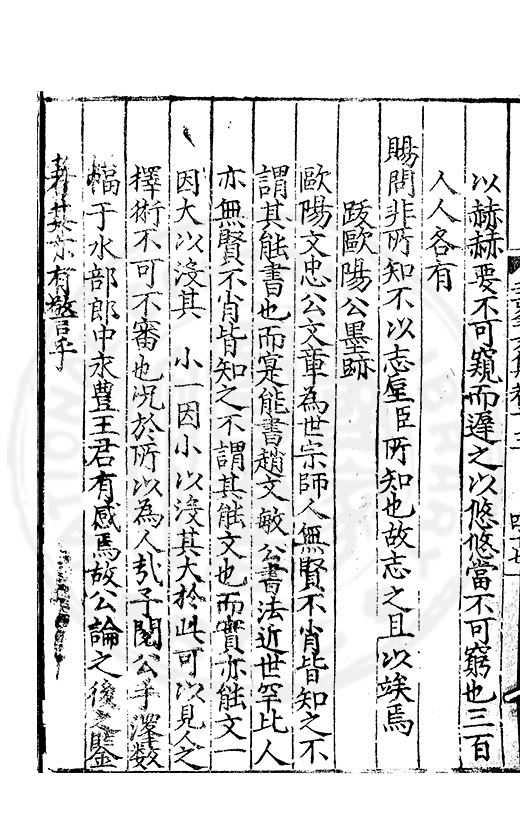 以赫赫要不可窺而遲之以悠悠當不可窮也三百
人人各有
賜問非所知不以志聖臣所知也故志之且以竢焉
跋歐陽公墨跡
歐陽文忠公文章為世宗師人無賢不肖皆知之不
謂其能書也而寔能書趙文敏公書法近世罕比人
亦無賢不肖皆知之不謂其能文也而實亦能文一
因大以沒其 小一因小以沒其大於此可以見人之
擇術不可不審也况於所以為人乎予閱公手澤數
幅于水部郎中永豊王君有感焉故公論之後之鑒
其亦有警乎